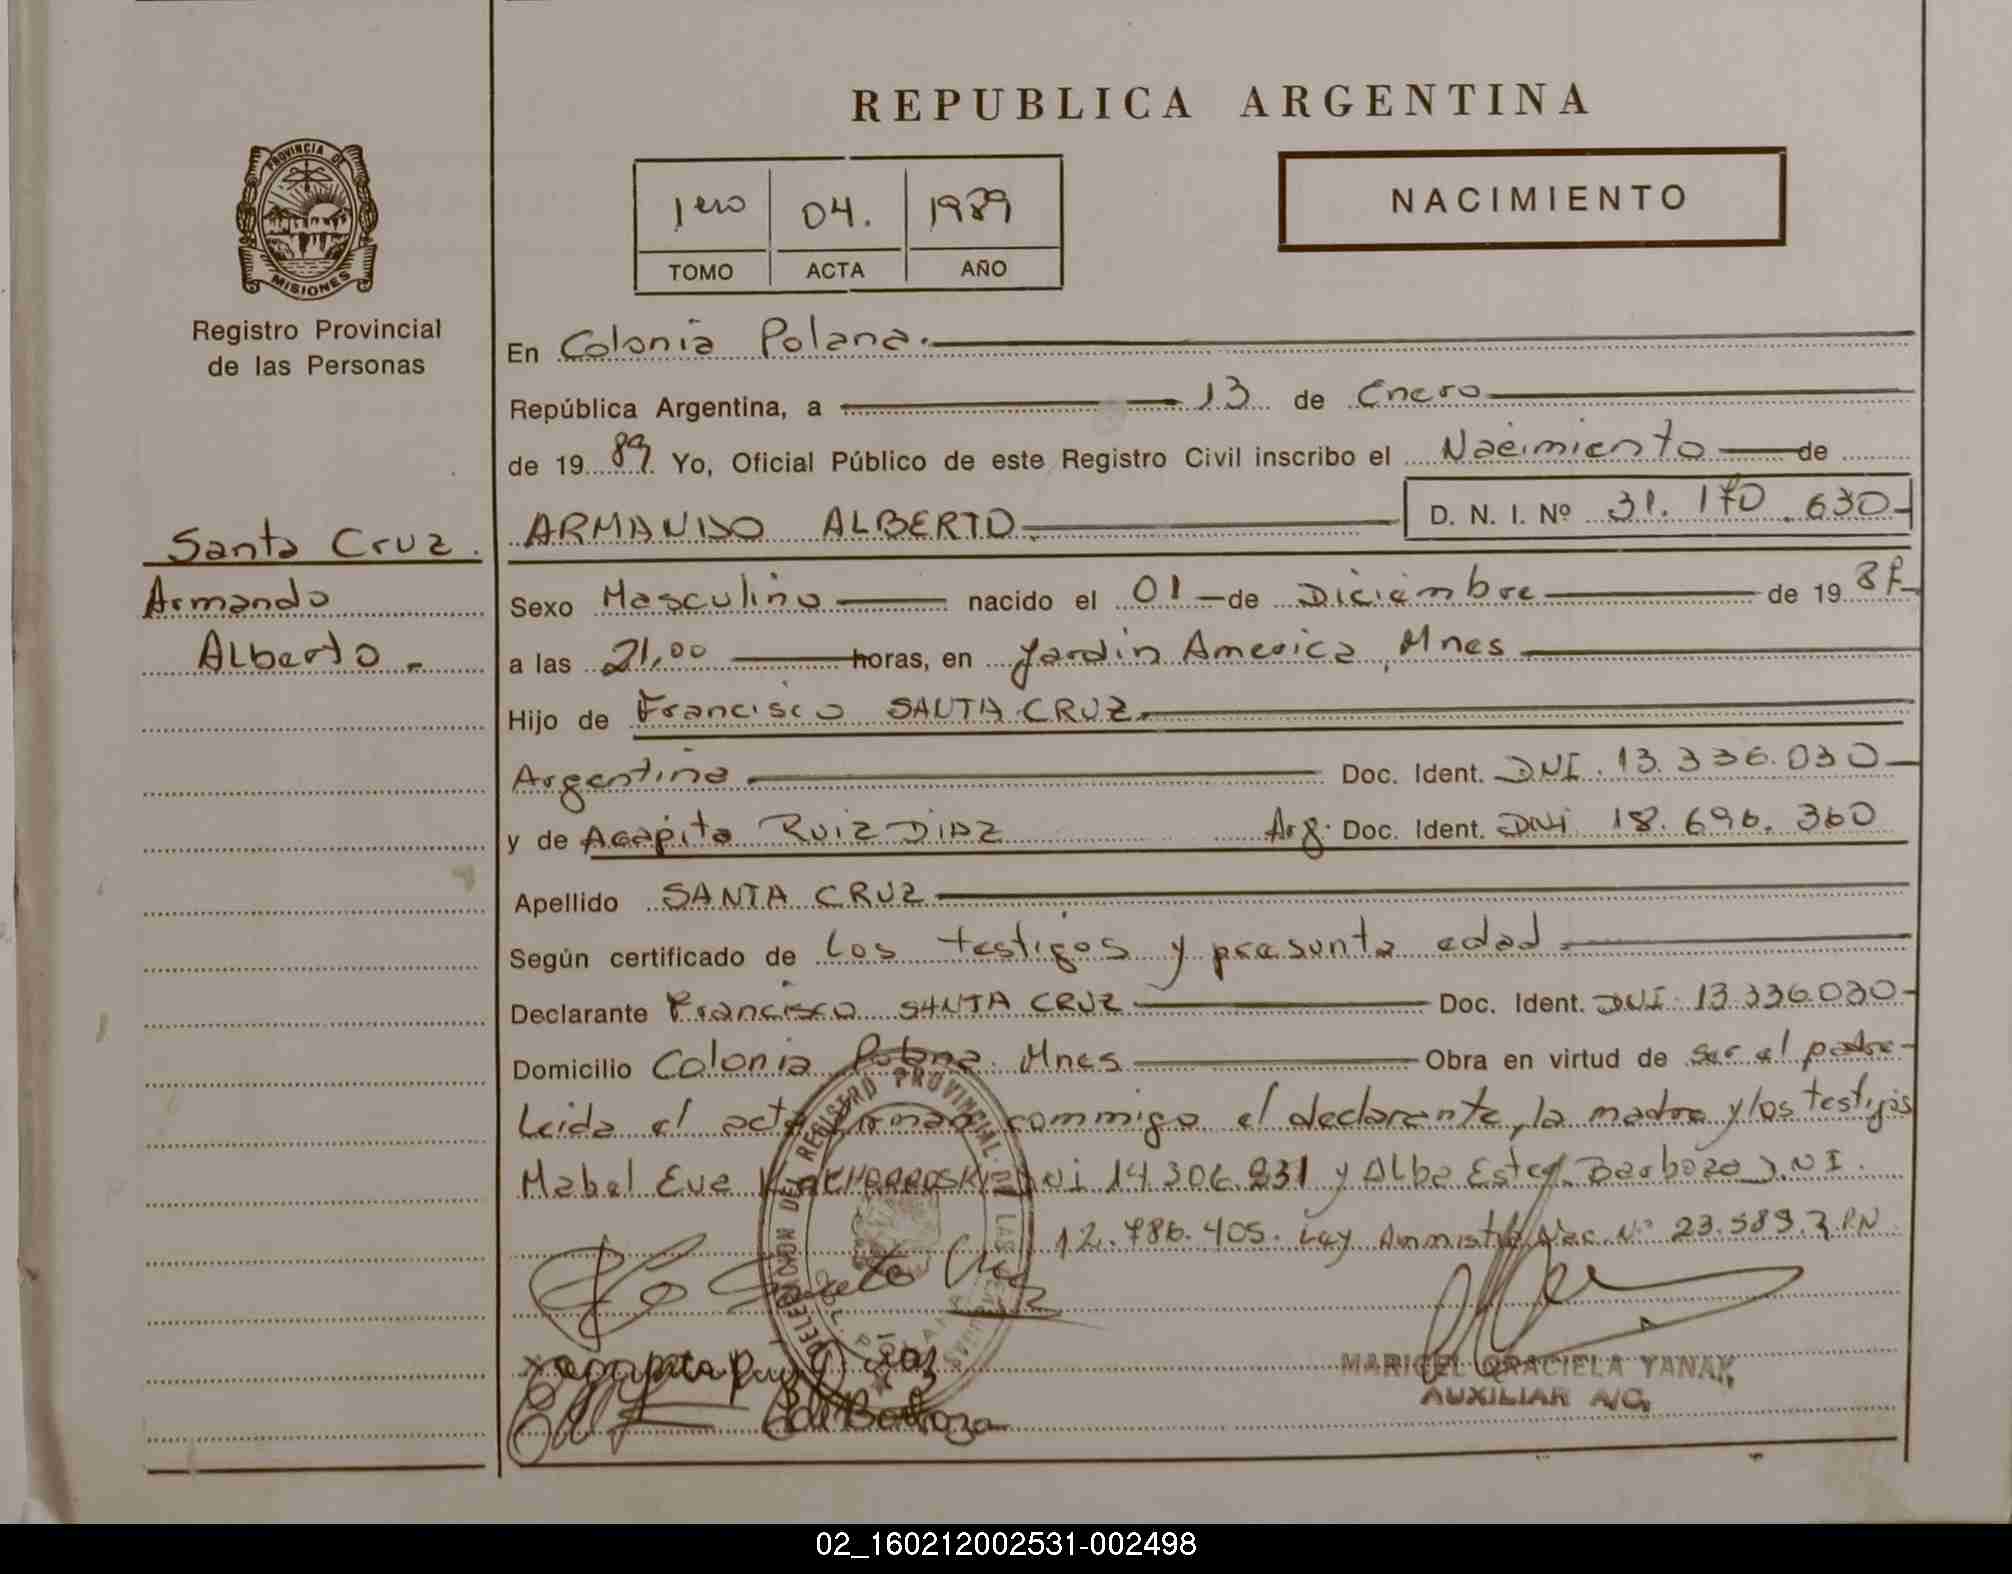 REPUBLICA ARGENTINA
PROVINCIA DE
MISIONES
Registro Provincial
de las Personas
Santa Cruz.
Armando
Alberto.-
1ero 04. 1989
TOMO ACTA AÑO
NACIMIENTO
En Colonia Polana.
República Argentina, a 13 de Enero
de 1989. Yo, Oficial Público de este Registro Civil inscribo el Nacimiento de
ARMANDO ALBERTO. D. N. I. Nº 31.170.630-
Sexo Masculino nacido el 01 de Diciembre de 19
a las 21,00 horas, en Jardin America, Mnes
Hijo de Francisco SANTA CRUZ.
Argentina Doc. Ident. DNI. 13.336.030
y de Agapita RUIZ DIAZ Arg. Doc. Ident. DNI 18.696.360
Apellido SANTA CRUZ
Según certificado de los testigos y presunta edad
Declarante Francisco SANTA CRUZ Doc. Ident. DNI. 13.336.030-
Domicilio Colonia Polana. Mnes Obra en virtud de ser el padre-
Leida el acta firman commigo el declarante, la madre y los testigos
Mabel Eva DNI 14.306.831 y Alba Ester Barboza D.N.I.
12.786.405. Ley Nac. Nº 23.589.
DELEGACION DEL REGISTRO PROVINCIAL DE LAS PERSONAS
Santa Cruz
agapita Ruiz Diaz
de Barboza
MARICEL GRACIELA YANAK
AUXILIAR A/C.
02_160212002531-002498